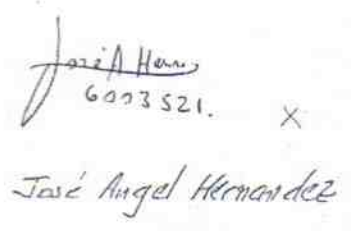 José A Herns
6003521.
X
José Angel Hernandez